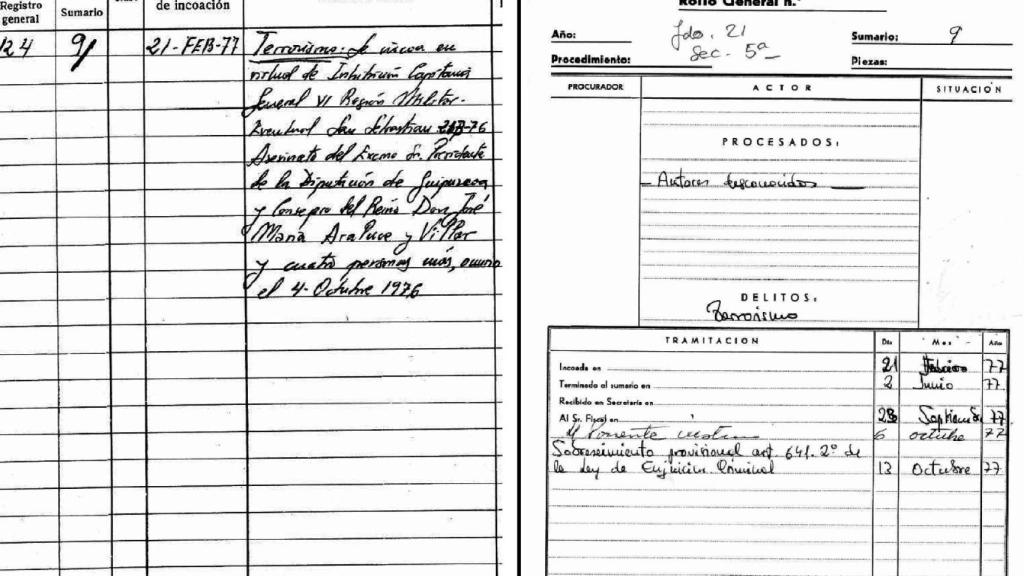 Registro
general
Sumario
de incoación
124
9/
21-FEB-77
Terrorismo. Se incoa en
virtud de Inhibición Capitanía
General VI Región Militar.
Eventual San Sebastian
Asesinato del Excmo Sr. Presidente
de la Diputación de Guipuzcoa
y Consejero del Reino Don José
María Araluce y Villar
y cuatro personas más, ocurrido
el 4-Octubre 1976
Rollo General n.º
Año:
Jdo. 21
Sumario: 9
Procedimiento:
Sec. 5ª
Piezas:
PROCURADOR
ACTOR
SITUACIÓN
PROCESADOS:
- Autores desconocidos
DELITOS:
Terrorismo
TRAMITACION Día Mes Año
Incoada en 21 Febrero 77
Terminado el sumario en 2 Junio 77
Recibido en Secretaría en
Al Sr. Fiscal en Septiembre 77
Al Ponente 6 octubre 77
Sobreseimiento provisional art. 641. 2º de
la Ley de Enjuicim. Criminal 13 Octubre 77